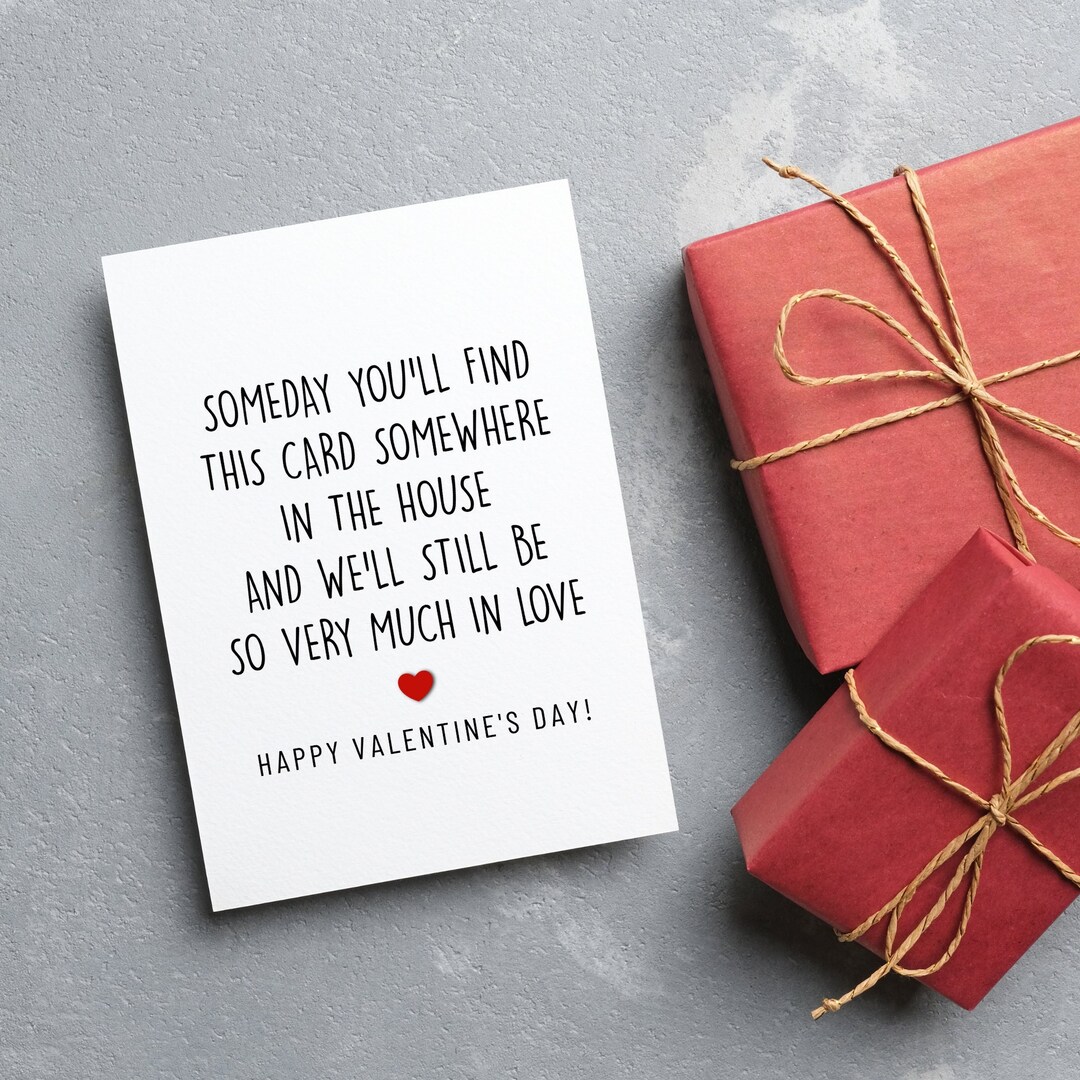 SOMEDAY YOU'LL FIND
THIS CARD SOMEWHERE
IN THE HOUSE
AND WE'LL STILL BE
SO VERY MUCH IN LOVE
HAPPY VALENTINE'S DAY!